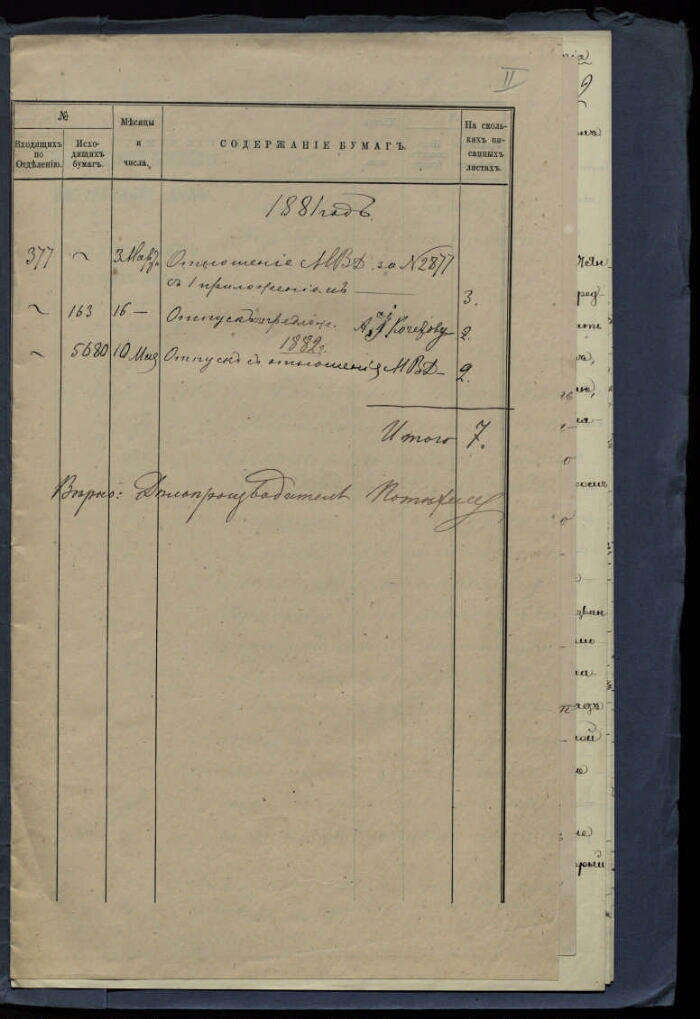 II
№
Входящихъ по Отдѣленію.
Исходящихъ бумагъ.
Мѣсяцы и числа.
СОДЕРЖАНІЕ БУМАГЪ.
На сколькихъ писанныхъ листахъ.
1881 годъ.
377 ~ 3 Мар. Отношеніе МВД. за № 2877
съ 1 приложеніемъ 3.
~ 163 16 — Отпускъ А. Кочетову 2.
1882 г.
~ 5680 10 Мая Отпускъ отношенія МВД — 2.
Итого 7.
Вѣрно: Дѣлопроизводитель